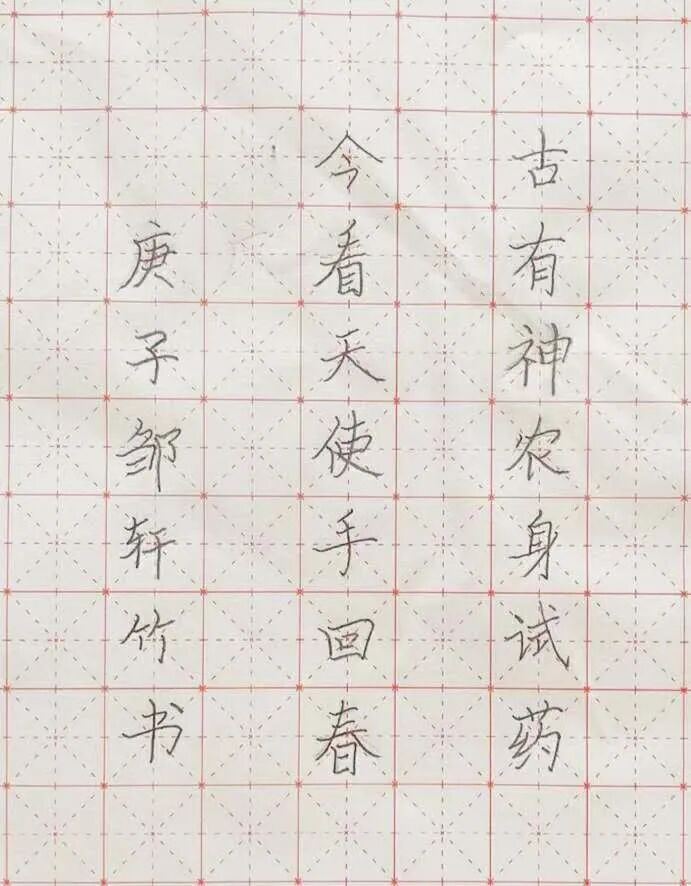 古有神农身试药
今看天使手回春
庚子邹轩竹书